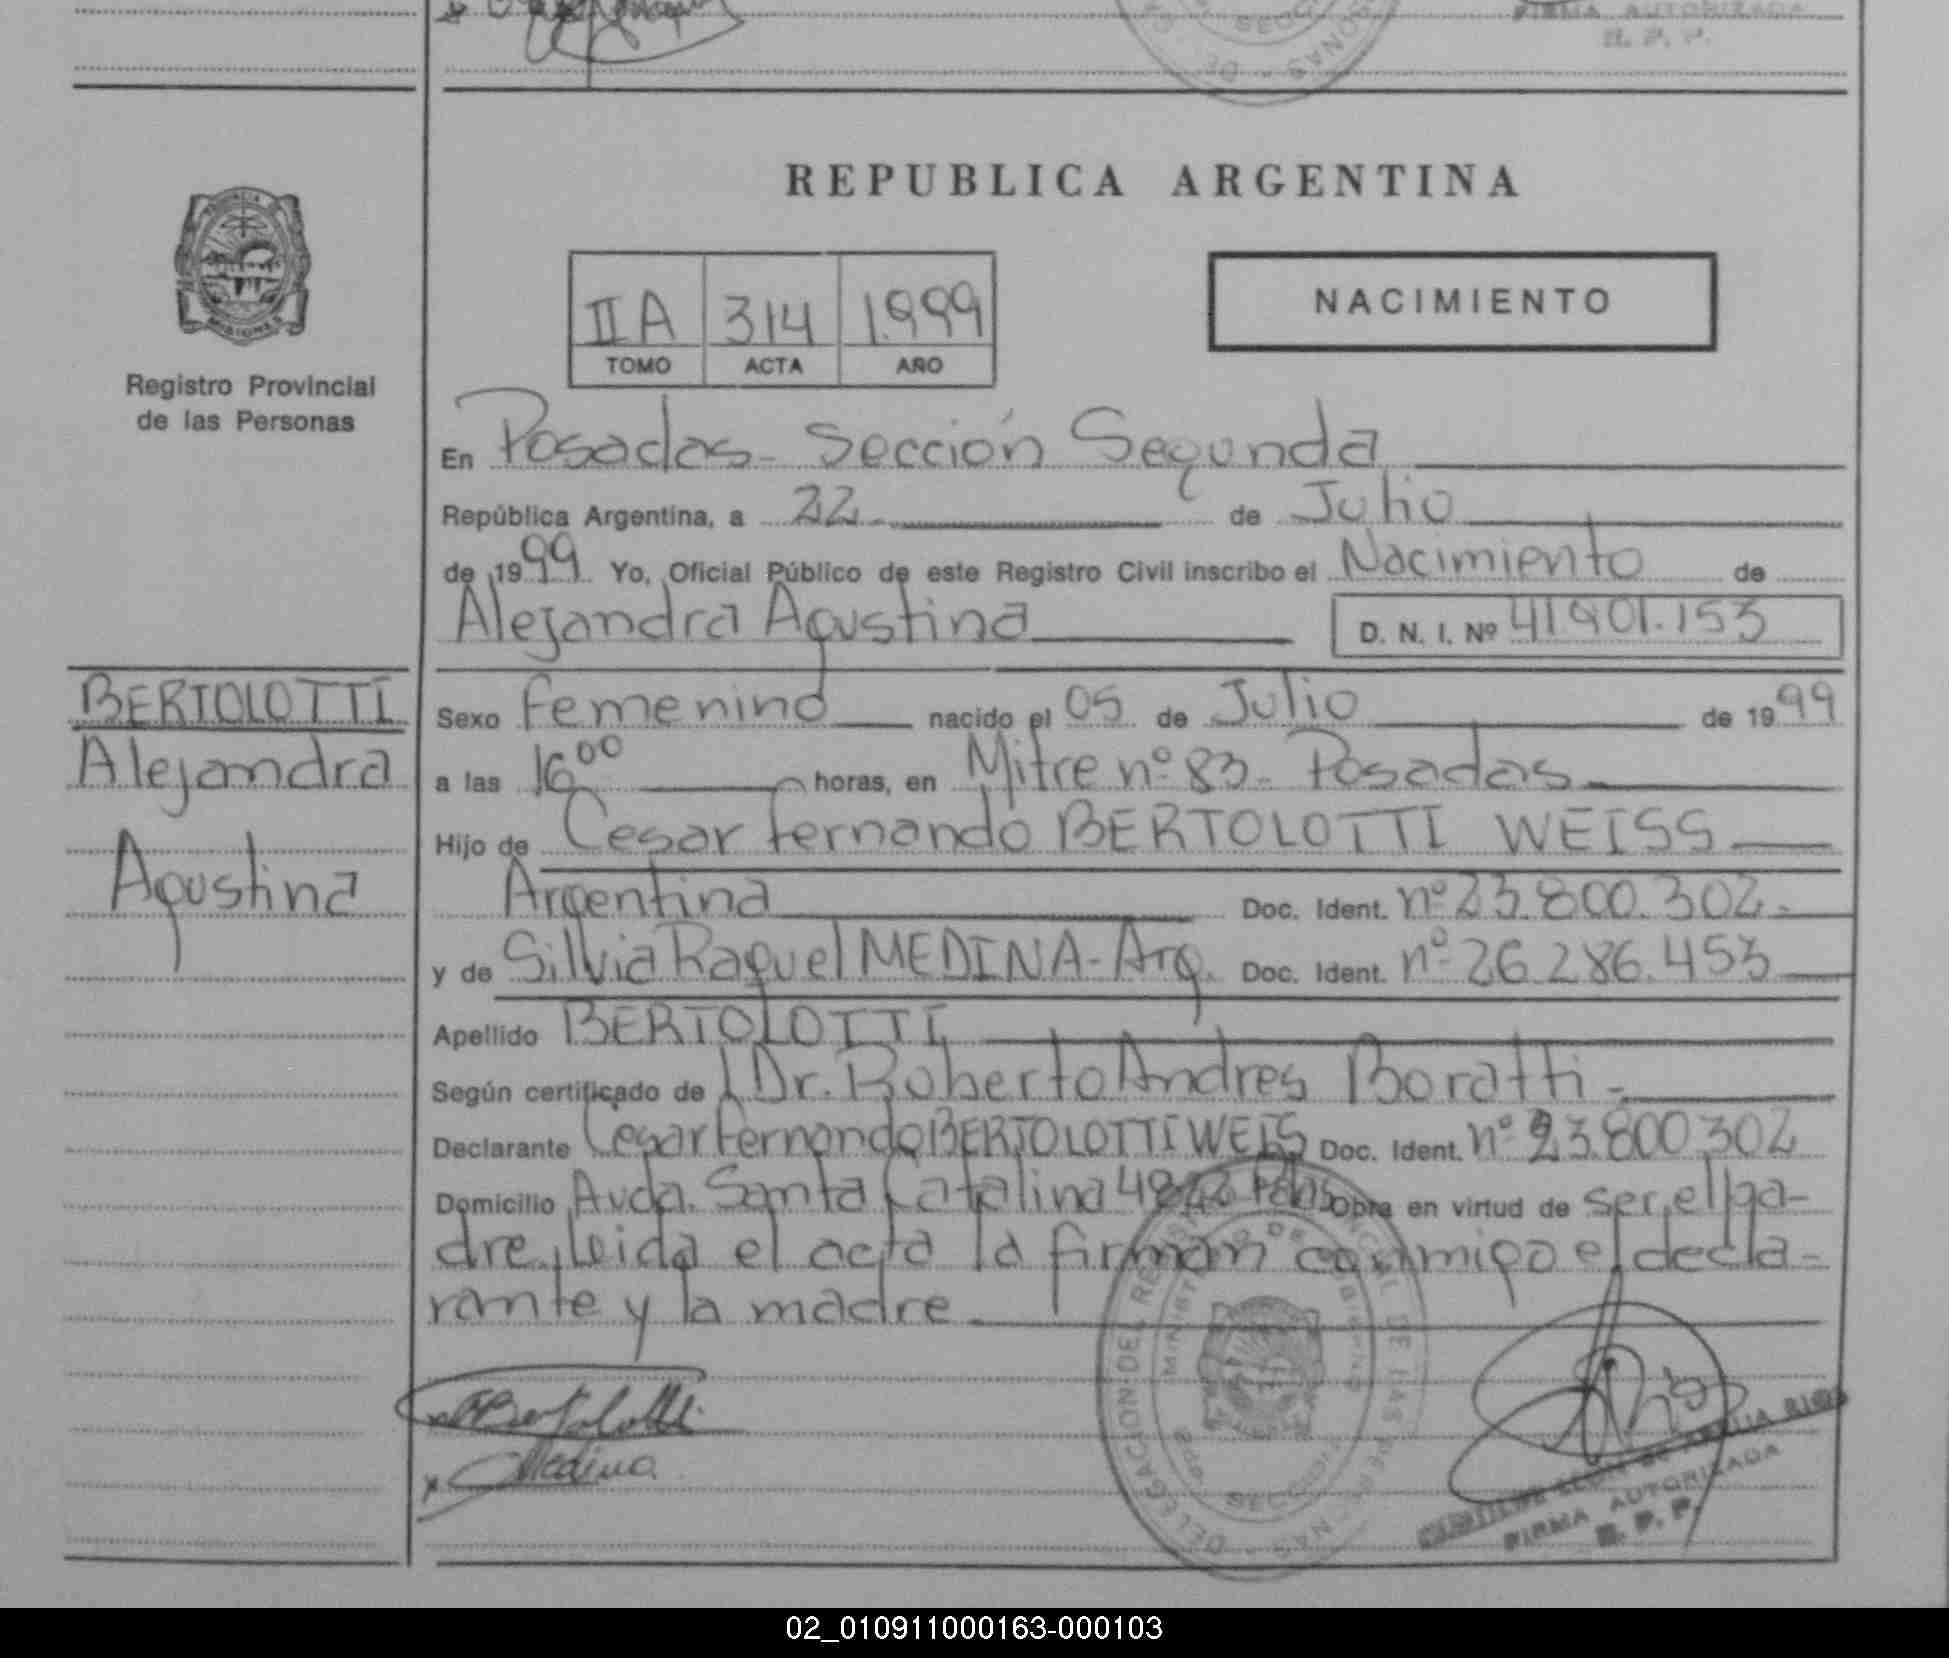 FIRMA AUTORIZADA
R. P. P.
REPUBLICA ARGENTINA
IIA 314 1.999
TOMO ACTA AÑO
NACIMIENTO
MISIONES
Registro Provincial
de las Personas
En Posadas - Sección Segunda
República Argentina, a 22 de Julio
de 1999 Yo, Oficial Público de este Registro Civil inscribo el Nacimiento de
Alejandra Agustina D. N. I. Nº 41901.153
BERTOLOTTI
Alejandra
Agustina
Sexo Femenino nacido el 05 de Julio de 1999
a las 16⁰⁰ horas, en Mitre nº 83 - Posadas
Hijo de Cesar Fernando BERTOLOTTI WEISS
Argentina Doc. Ident. nº 23.800.302.
y de Silvia Raquel MEDINA - Arg. Doc. Ident. nº 26.286.453
Apellido BERTOLOTTI
Según certificado de Dr. Roberto Andres Boratti -
Declarante Cesar Fernando BERTOLOTTI WEIS Doc. Ident. nº 23.800302
Domicilio Avda. Santa Catalina Pdas Obra en virtud de ser el pa-
dre, leida el acta la firman conmigo el decla-
rante y la madre
Bertolotti
Medina
DELEGACION DEL REGISTRO PROVINCIAL DE LAS PERSONAS
MINISTERIO DE GOBIERNO
SECCION
RIOS
FIRMA AUTORIZADA
R. P. P.
02_010911000163-000103